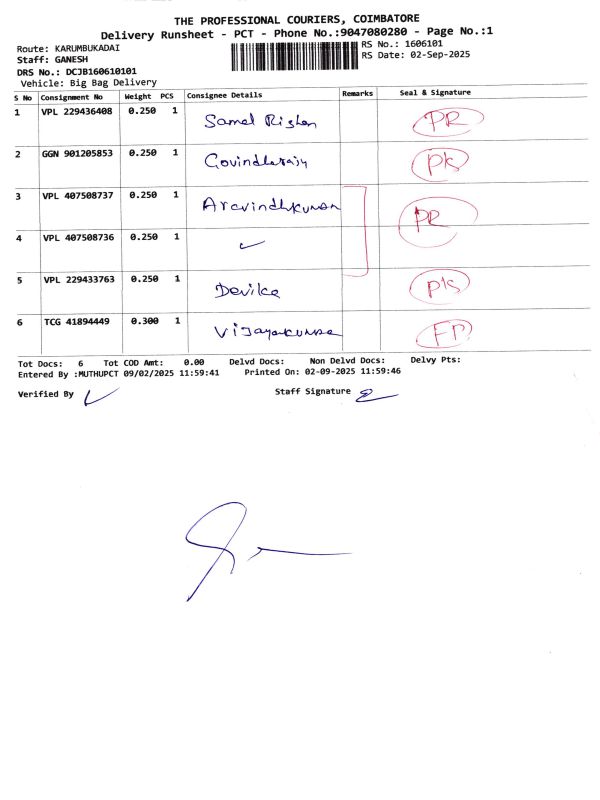 THE PROFESSIONAL COURIERS, COIMBATORE
Delivery Runsheet - PCT - Phone No.:9047080280 - Page No.:1
Route: KARUMBUKADAI RS No.: 1606101
Staff: GANESH RS Date: 02-Sep-2025
DRS No.: DCJB160610101
Vehicle: Big Bag Delivery
S No Consignment No Weight PCS Consignee Details Remarks Seal & Signature
1 VPL 229436408 0.250 1 PR
2 GGN 901205853 0.250 1 Govindharajy PK
3 VPL 407508737 0.250 1 Aravindhkumar PR
4 VPL 407508736 0.250 1
5 VPL 229433763 0.250 1 Devika PK
6 TCG 41894449 0.300 1 Vijayakumar FP
Tot Docs: 6 Tot COD Amt: 0.00 Delvd Docs: Non Delvd Docs: Delvy Pts:
Entered By :MUTHUPCT 09/02/2025 11:59:41 Printed On: 02-09-2025 11:59:46
Verified By Staff Signature